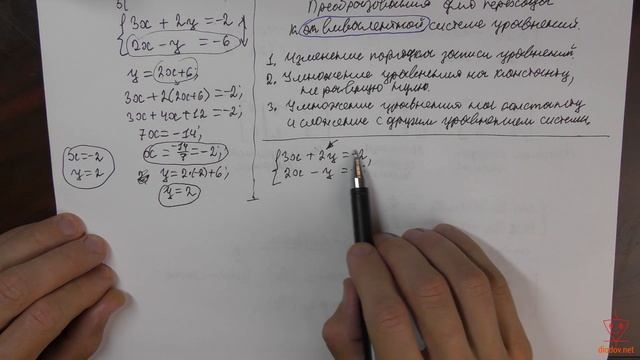 3x + 2y = -2
2x - y = -6
y = 2x+6;
3x + 2(2x+6) = -2;
3x + 4x + 12 = -2;
7x = -14;
x = -14/7 = -2;
y = 2·(-2)+6;
y = 2
x = -2
y = 2
Преобразования для перехода
к эквивалентной системе уравнений.
1. Изменение порядка записи уравнений.
2. Умножение уравнения на константу,
не равную нулю.
3. Умножение уравнения на константу
и сложение с другим уравнением системы
3x + 2y = -2,
2x - y =
diedov.net